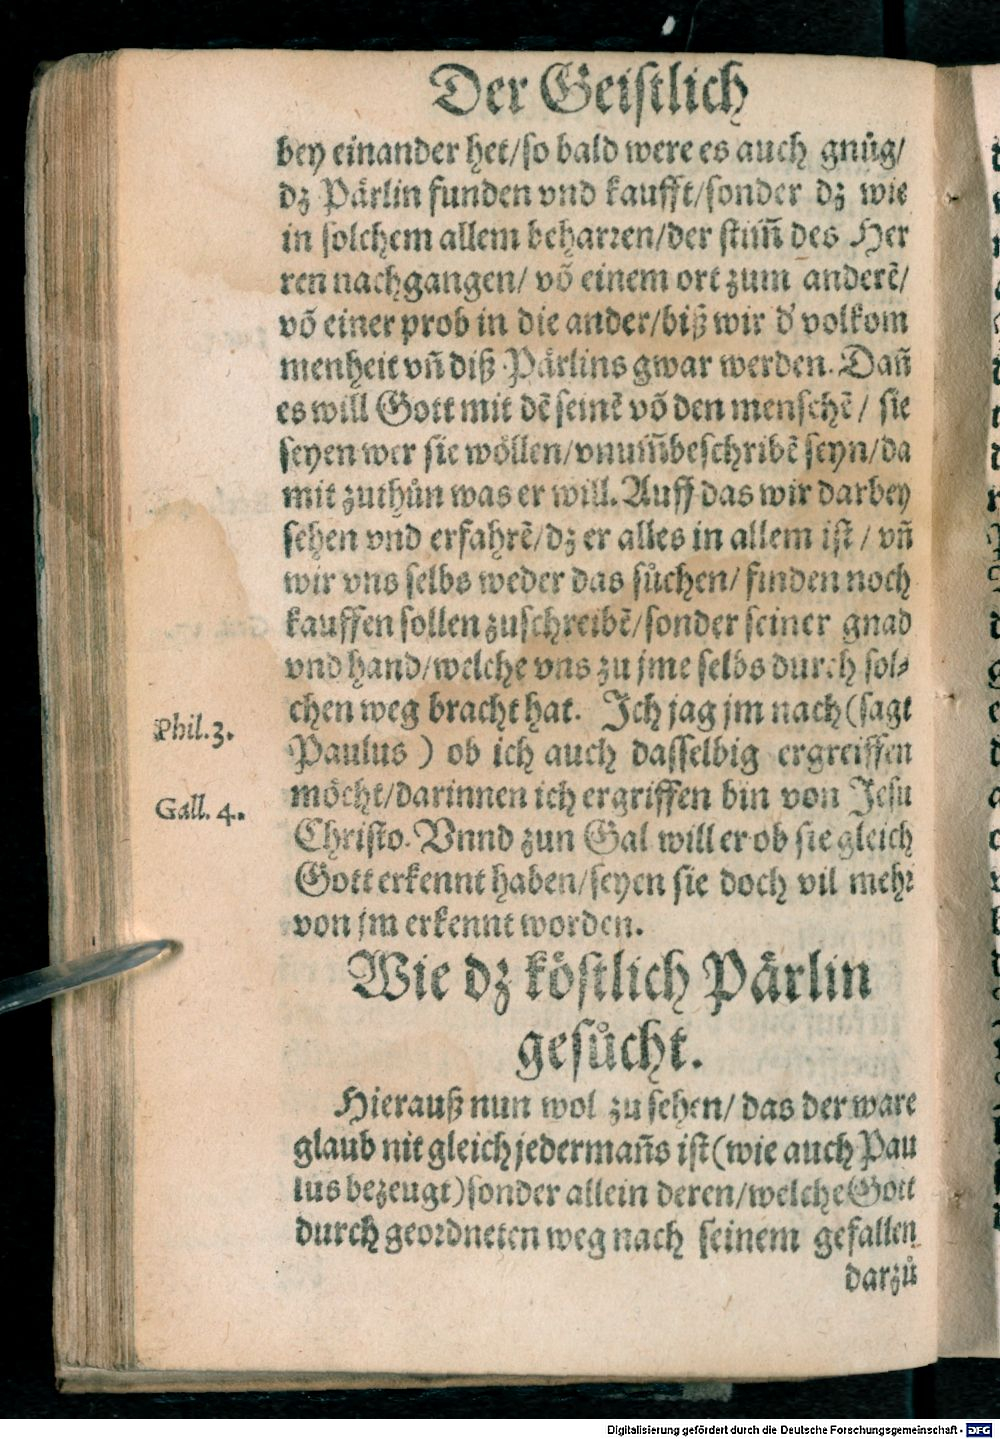 Der Geistlich
bey einander het/so bald were es auch gnůg/
dz Pärlin funden vnd kaufft/sonder dz wie
in solchem allem beharren/der stim̃ des Her
ren nachgangen/ võ einem ort zum anderẽ/
võ einer prob in die ander/biß wir d' volkom
menheit vñ diß Pärlins gwar werden. Dañ
es will Gott mit dẽ seinẽ võ den menschẽ / sie
seyen wer sie wöllen/vnum̃beschribẽ seyn/da
mit zuthůn was er will. Auff das wir darbey
sehen vnd erfahrẽ/dz er alles in allem ist / vñ
wir vns selbs weder das sůchen/ finden noch
kauffen sollen zuschreibẽ/sonder seiner gnad
vnd hand/welche vns zu jme selbs durch sol⸗
chen weg bracht hat. Ich jag jm nach (sagt
Phil.3.
Paulus ) ob ich auch dasselbig ergreiffen
möcht/darinnen ich ergriffen bin von Jesu
Gall. 4.
Christo. Vnnd zun Gal will er ob sie gleich
Gott erkennt haben/seyen sie doch vil mehr
von jm erkennt worden.
Wie dz köstlich Pärlin
gesůcht.
Hierauß nun wol zu sehen/ das der ware
glaub nit gleich jedermañs ist (wie auch Pau
lus bezeugt) sonder allein deren/welche Gott
durch geordneten weg nach seinem gefallen
darzů
Digitalisierung gefördert durch die Deutsche Forschungsgemeinschaft - DFG